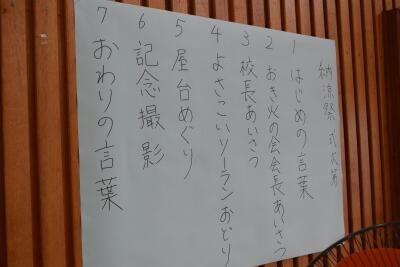 納涼祭 式次第
1 はじめの言葉
2 おき火の会会長あいさつ
3 校長あいさつ
4 よさこいソーランおどり
5 屋台めぐり
6 記念撮影
7 おわりの言葉